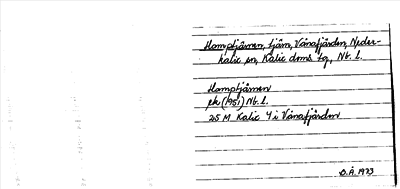 Hamptjärnen, tjärn, Vånafjärden, Neder-
kalix sn, Kalix dms tg, Nb. l.
Hamptjärnen
pk (1951) Nb. l.
25 M Kalix 4 i Vånafjärden
B.Å. 1973